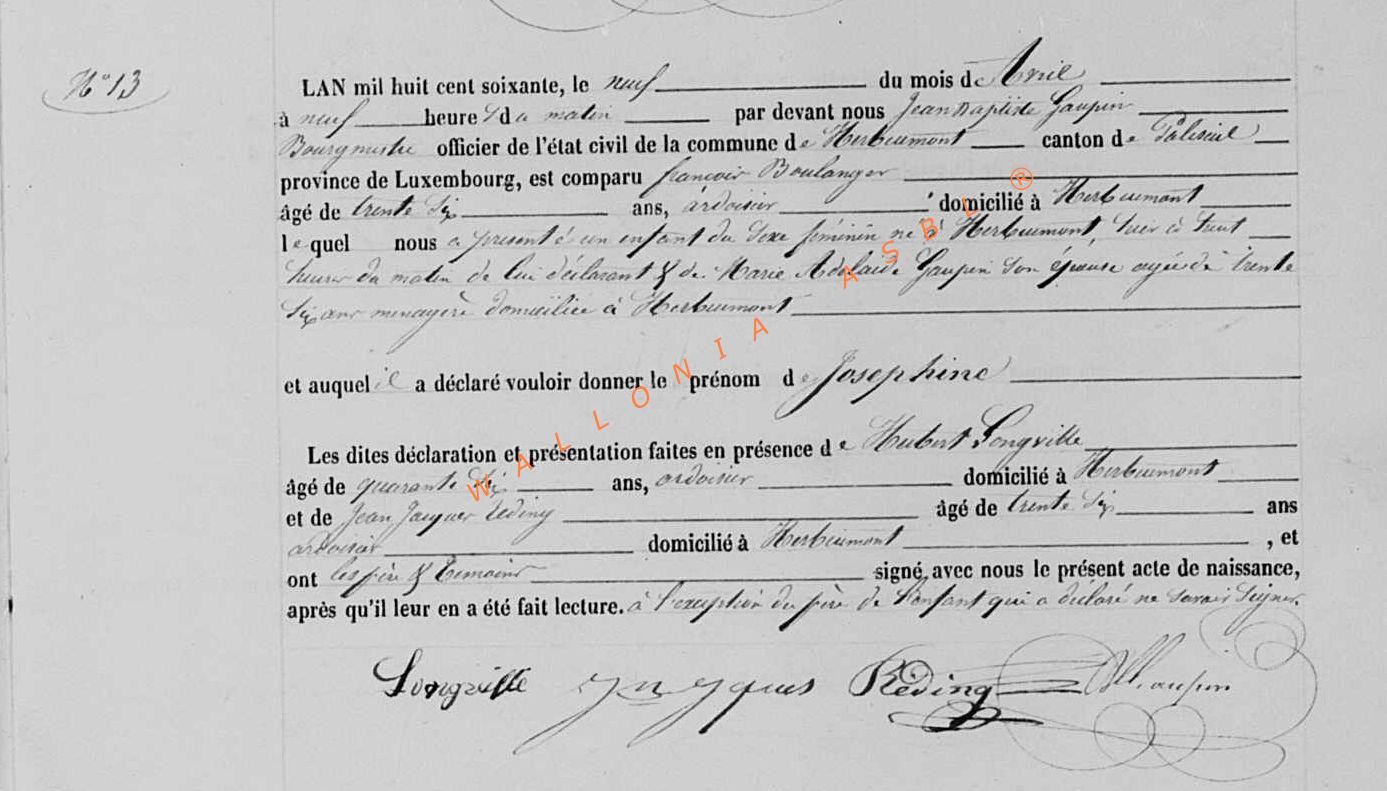 N° 13
LAN mil huit cent soixante, le neuf du mois de Avril
à neuf heures du matin par devant nous Jean Baptiste Gaupin
Bourgmestre officier de l'état civil de la commune de Herbeumont canton de Paliseul
province de Luxembourg, est comparu françois Boulanger
âgé de trente six ans, ardoisier domicilié à Herbeumont
lequel nous a presenté un enfant du sexe féminin né à Herbeumont, hier à huit
heures du matin de lui déclarant & de Marie Adelaide Gaupin son épouse agée de trente
six ans menagère domiciliée à Herbeumont
et auquel il a déclaré vouloir donner le prénom de Josephine
Les dites déclaration et présentation faites en présence de Hubert Longville
âgé de quarante six ans, ardoisier domicilié à Herbeumont
et de Jean Jacques Reding âgé de trente six ans
ardoisier domicilié à Herbeumont, et
ont les père & temoins signé avec nous le présent acte de naissance,
après qu'il leur en a été fait lecture. à l'exception du père de l'enfant qui a déclaré ne savoir signer.
Longville Reding Gaupin
WALLONIA ASBL ®